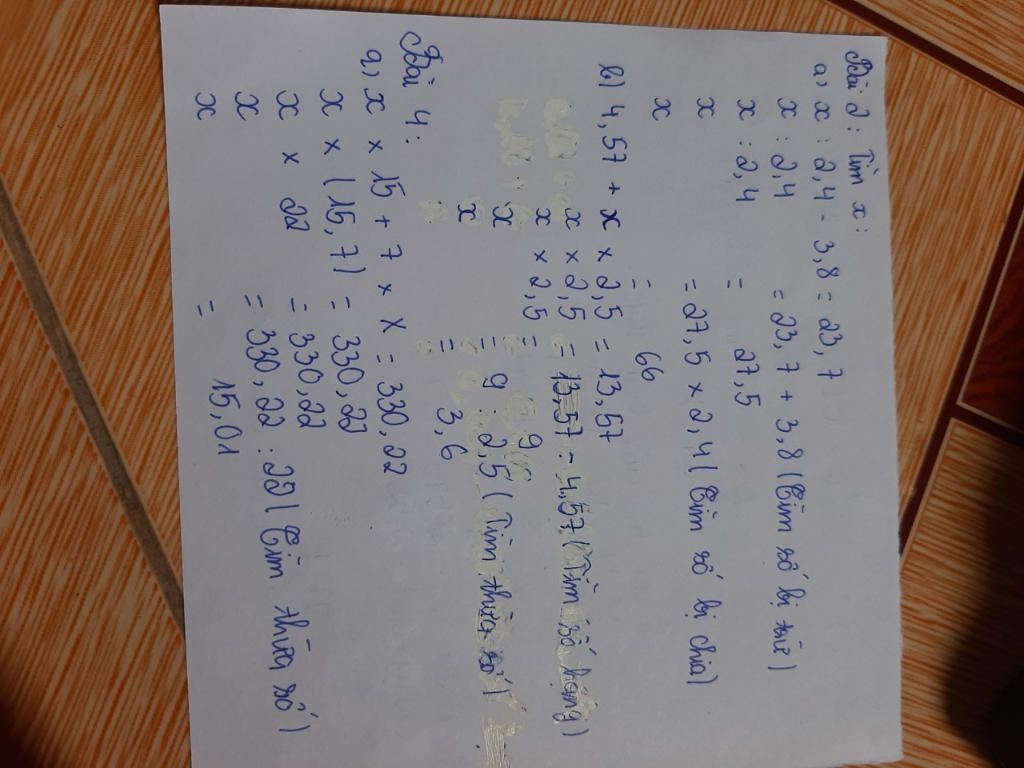 Bài 2: Tìm x:
a, x : 2,4 - 3,8 = 23,7
x : 2,4 = 23,7 + 3,8 (Tìm số bị trừ)
x : 2,4 = 27,5
x = 27,5 x 2,4 (Tìm số bị chia)
x = 66
b) 4,57 + x x 2,5 = 13,57
x x 2,5 = 13,57 - 4,57 (Tìm số hạng)
x x 2,5 = 9
x = 9 : 2,5 (Tìm thừa số)
x = 3,6
Bài 4:
a, x x 15 + 7 x x = 330,22
x x (15,7) = 330,22
x x 22 = 330,22
x = 330,22 : 22 (Tìm thừa số)
x = 15,01